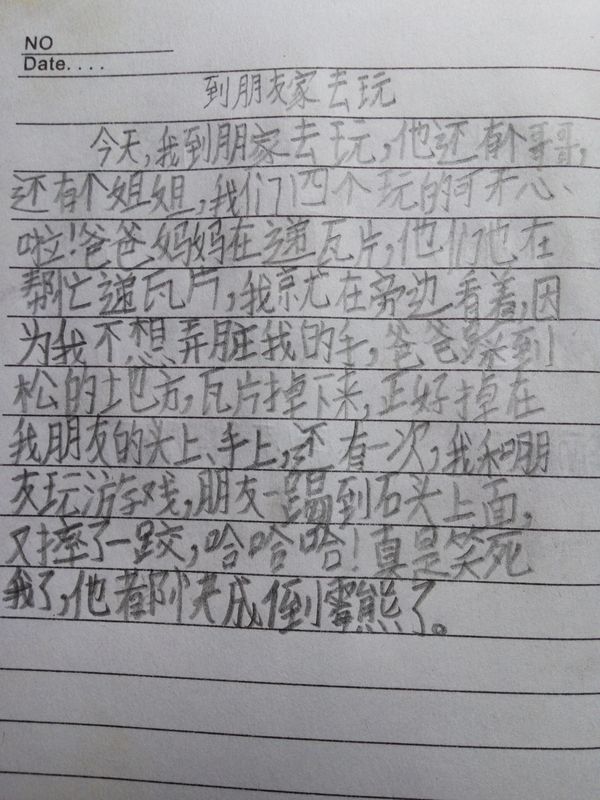 NO
Date....
到朋友家去玩
今天,我到朋家去玩,他还有个哥哥,
还有个姐姐,我们四个玩的可开心、
啦!爸爸妈妈在递瓦片,他们也在
帮忙递瓦片,我就在旁边看着,因
为我不想弄脏我的手,爸爸踩到
松的地方,瓦片掉下来,正好掉在
我朋友的头上、手上,还有一次,我和朋
友玩游戏,朋友一踢到石头上面,
又摔了一跤,哈哈哈!真是笑死
我了,他都快成倒霉熊了。